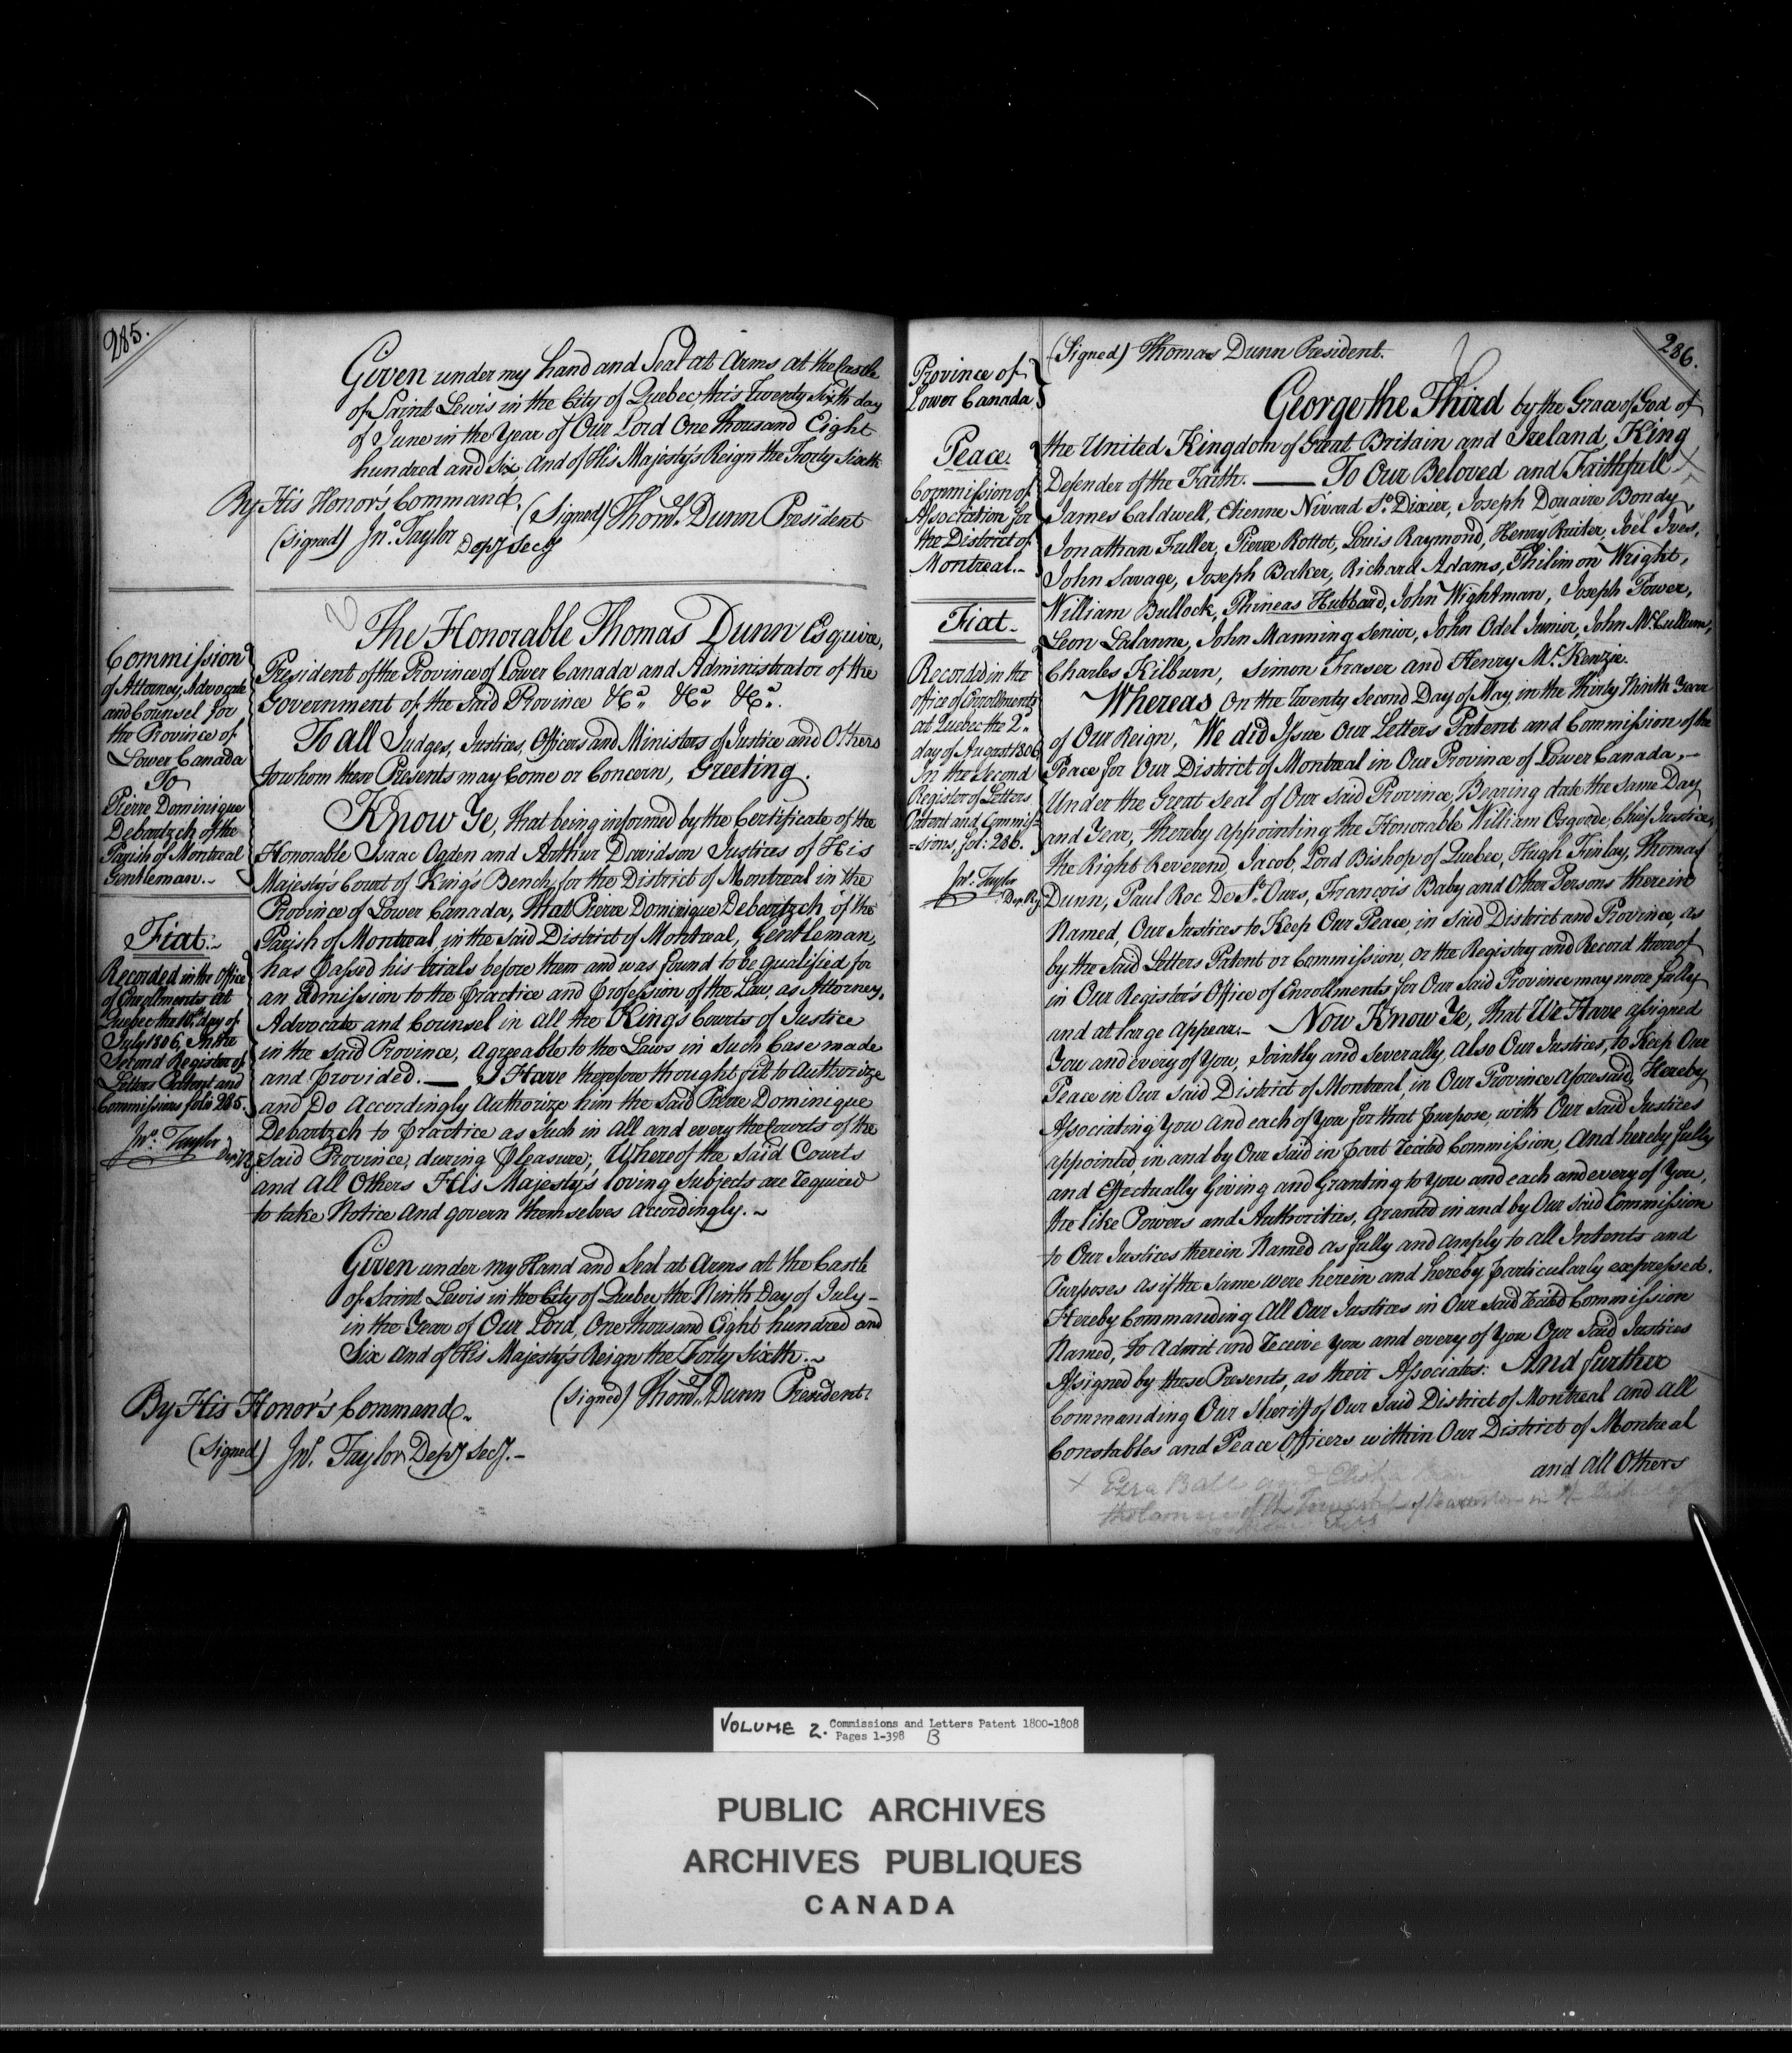 285.
Given under my hand and Seal at Arms at the Castle
of Saint Lewis in the City of Quebec this Twenty Sixth day
of June in the Year of Our Lord One thousand Eight
hundred and Six and of His Majesty's Reign the Forty Sixth
By His Honors Command,
(Signed) Thom.s Dunn President
(Signed) Jn.o Taylor
Dep.y Sec.y
Commission
of Attorney, Advocate
and Counsel for
the Province of
Lower Canada
To
Pierre Dominique
Debartzch of the
Parish of Montreal
Gentleman.~
Fiat.~
Recorded in the Office
of Enrollments at
Quebec the 10.th day of
July 1806, In the
Second Register of
Letters Patent and
Commissions folio 285.
Jn.o Taylor
Dep. Rg
The Honorable Thomas Dunn Esquire,
President of the Province of Lower Canada and Administrator of the
Government of the Said Province &c.a &c.a &c.a.
To all Judges, Justices, Officers and Ministers of Justice and Others
to whom these Presents may Come or Concern, Greeting.
Know Ye, That being informed by the Certificate of the
Honorable Isaac Ogden and Arthur Davidson Justices of His
Majesty's Court of King's Bench, for the District of Montreal in the
Province of Lower Canada, that Pierre Dominique Debartzch of the
Parish of Montreal, in the said District of Montreal, Gentleman,
has passed his trials before them and was found to be qualified for
an Admission to the practice and profession of the Law, as Attorney,
Advocate and Counsel in all the King's Courts of Justice
in the Said Province, agreeable to the Laws in Such Case made
and provided.— I Have therefore thought fit to Authorize
and Do Accordingly Authorize him the Said Pierre Dominique
Debartzch to practice as Such in all and every the Courts of the
Said Province, during pleasure; Whereof the Said Courts
and All Others His Majesty's loving Subjects are required
to take Notice and govern themselves accordingly.~
Given under my Hand and Seal at Arms at the Castle
of Saint Lewis in the City of Quebec the Ninth Day of July-
in the Year of Our Lord, One thousand Eight hundred and
Six and of His Majesty's Reign the Forty Sixth.~
(Signed) Thom.s Dunn President.
By His Honor's Command.
(Signed) Jn.o Taylor Dep.y Sec.y.-
286.
Province of
Lower Canada
Peace.
Commission of
Association for
the District of
Montreal.~
Fiat.
Recorded in the
Office of Enrollments
at Quebec the 2.d
day of August 1806
In the Second
Register of Letters
Patent and Commis-
=sions, fol: 286.
Jn.o Taylor
Dep. Rg
(Signed) Thomas Dunn President.
George the Third by the Grace of God of
the United Kingdom of Great Britain and Ireland, King
Defender of the Faith.— To Our Beloved and Faithfull X
James Caldwell, Etienne Nivard S.t Dizier, Joseph Douaire Bondy,
Jonathan Fuller, Pierre Rottot, Louis Raymond, Henry Ruiter, Joel Ives,
John Savage, Joseph Baker, Richard Adams, Philimon Wright,
William Bullock, Phineas Hubbard, John Wightman, Joseph Power,
Leon Lalanne, John Manning Senior, John Odel Junior, John M.cCullum,
Charles Kilburn, Simon Fraser and Henry M.cKenzie.
Whereas on the Twenty Second Day of May, in the Thirty Ninth Year
of Our Reign, We did Issue Our Letters Patent and Commission of the
Peace for Our District of Montreal in Our Province of Lower Canada,—
Under the Great Seal of Our said Province, Bearing date the Same Day
and Year, thereby appointing the Honorable William Osgoode, Chief Justice,
the Right Reverend, Jacob, Lord Bishop of Quebec, Hugh Finlay, Thomas
Dunn, Paul Roc De S.t Ours, François Baby and Other Persons therein
Named, Our Justices to Keep Our Peace, in said District and Province, as
by the Said Letters Patent or Commission, or the Registry and Record thereof
in Our Register's Office of Enrollments for Our Said Province may more fully
and at large appear.— Now Know Ye, that We Have assigned
You and every of You, Jointly and Severally, also Our Justices, to Keep Our
Peace in Our Said District of Montreal, in Our Province aforesaid, Hereby
Associating You and each of You for that purpose, with Our Said Justices
appointed, in and by Our Said in part recited Commission, And hereby fully
and Effectually Giving and Granting to You and each and every of You,
the like Powers and Authorities, granted in and by Our Said Commission
to Our Justices therein Named as fully and amply to all Intents and
Purposes as if the Same were herein and hereby particularly expressed.
Hereby Commanding All Our Justices in Our Said recited Commission
Named, to Admit and receive You and every of You Our Said Justices
Assigned by these Presents, as their Associates: And further
Commanding Our Sheriff of Our Said District of Montreal and all
Constables and Peace Officers within Our District of Montreal
and all Others
X Ezra Ball and Elisha
of the Township of
VOLUME 2. Commissions and Letters Patent 1800-1808
Pages 1-398 B
PUBLIC ARCHIVES
ARCHIVES PUBLIQUES
CANADA